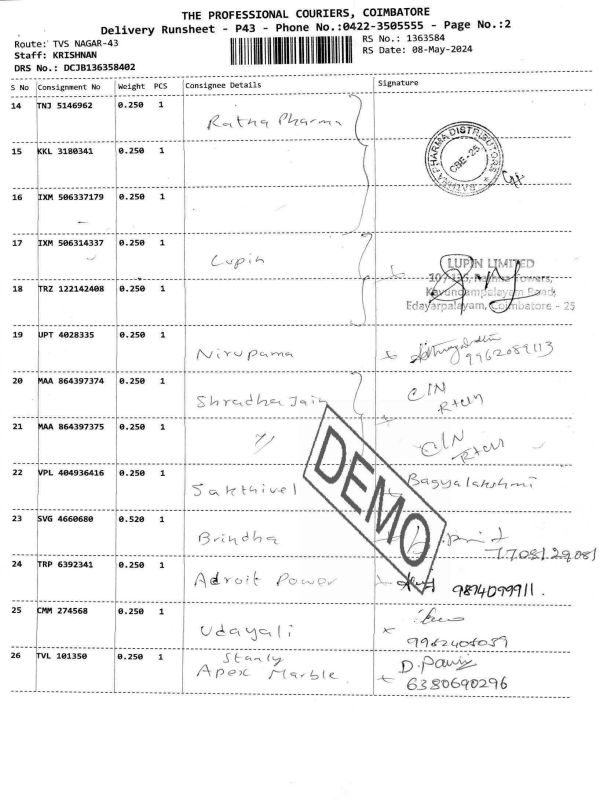 THE PROFESSIONAL COURIERS, COIMBATORE
Delivery Runsheet - P43 - Phone No.:0422-3505555 - Page No.:2
Route: TVS NAGAR-43 RS No.: 1363584
Staff: KRISHNAN RS Date: 08-May-2024
DRS No.: DCJB136358402
S No Consignment No Weight PCS Consignee Details Signature
14 TNJ 5146962 0.250 1
Ratna Pharma
PHARMA DISTRIBUTORS
CBE-25
15 KKL 3180341 0.250 1
16 IXM 506337179 0.250 1
17 IXM 506314337 0.250 1
Lupin
LUPIN LIMITED
Towers,
18 TRZ 122142408 0.250 1
Kavundampalayam Road,
Edayarpalayam, Coimbatore - 25
19 UPT 4028335 0.250 1
Nirupama 9962089113
20 MAA 864397374 0.250 1
Shradha Jain C/N
Rtun
21 MAA 864397375 0.250 1
〃 C/N
Rtun
DEMO
22 VPL 404936416 0.250 1
Sakthivel Bagyalakshmi
23 SVG 4660680 0.520 1
Brindha
24 TRP 6392341 0.250 1
Adroit Power 9874099911.
25 CMM 274568 0.250 1
Udayali
26 TVL 101350 0.250 1
Stanly
Apex Marble.
6380690296